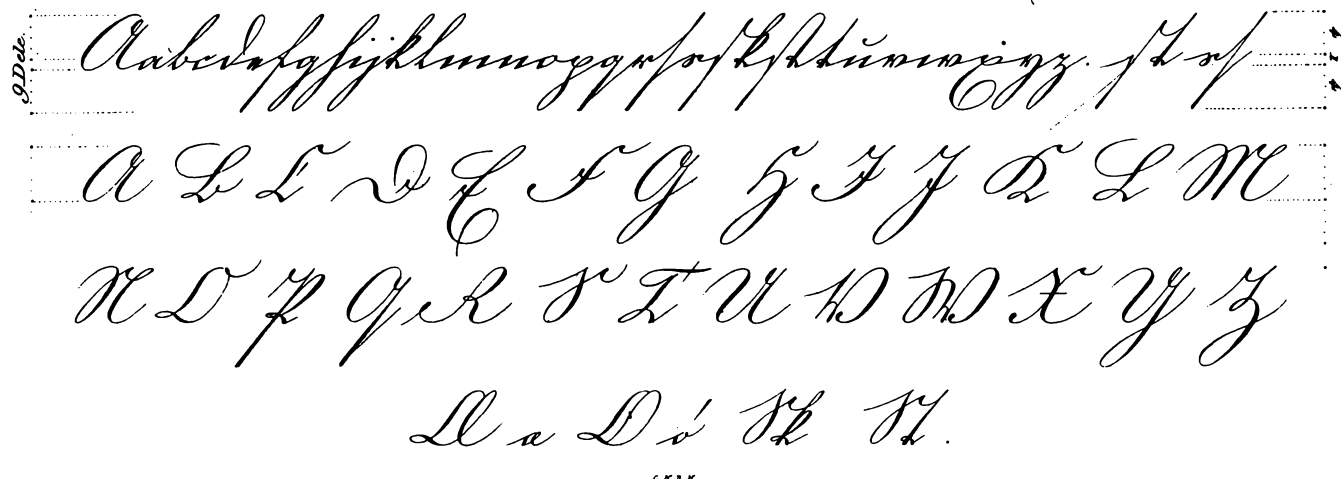 9 Dele
Aabcdefghijklmnopqrſsſkſttuvwxyz. ſt sſ
A B C D E F G H I J K L M
N O P Q R S T U V W X Y Z
Æ æ Ø ø Sk St.